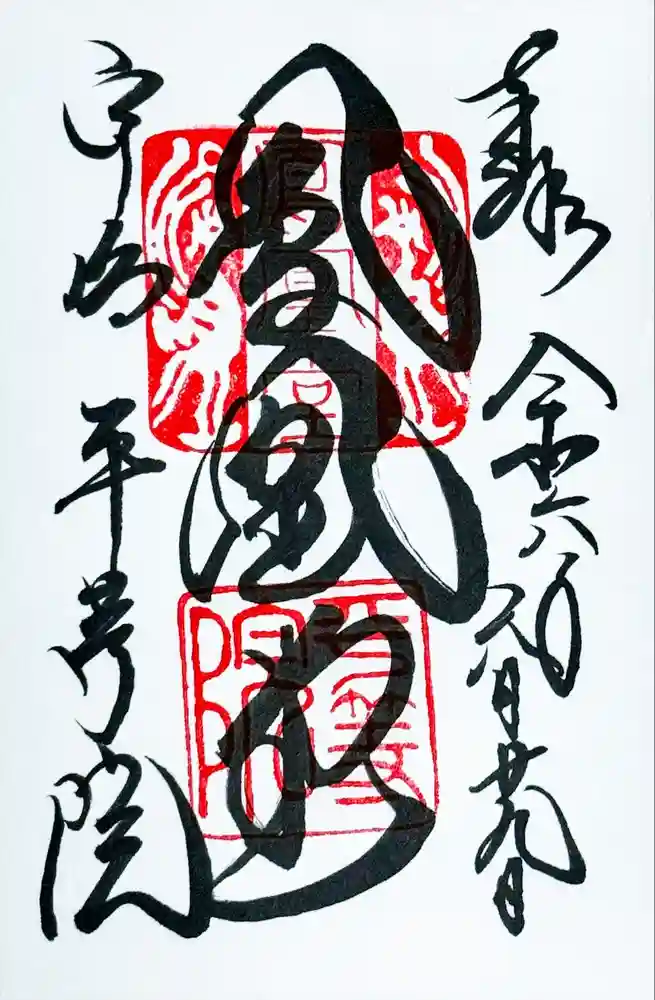 奉拝
令和六年
月廿九日
鳳凰堂
鳳凰堂
平等院
宇治 平等院